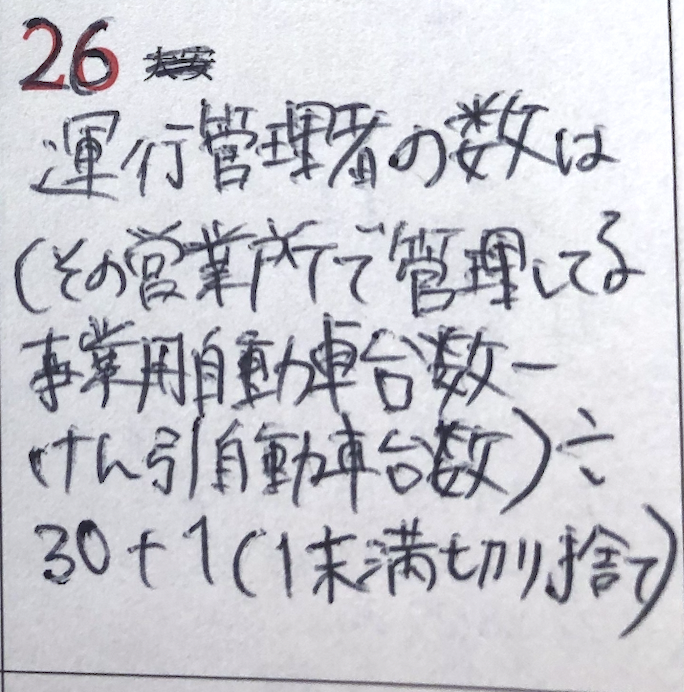 26
運行管理者の数は
(その営業所で管理してる
事業用自動車台数ー
けん引自動車台数)÷
30+1(1未満切り捨て)